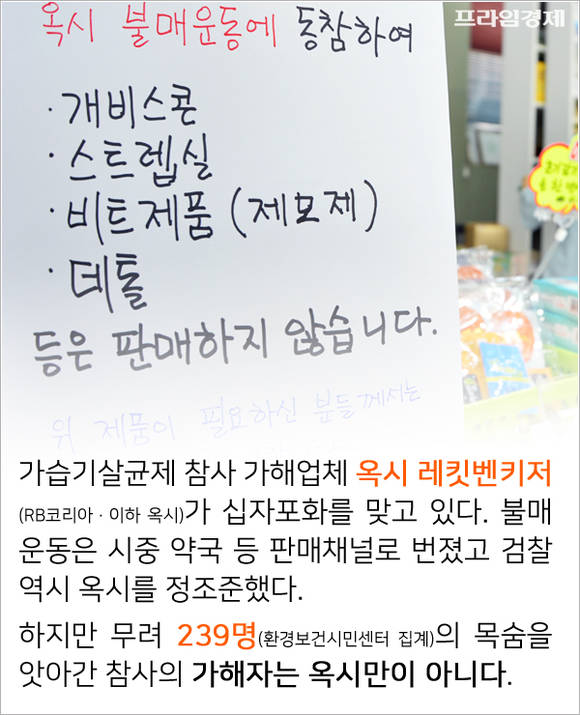 프라임경제
옥시 불매운동에 동참하여
· 개비스콘
· 스트렙실
· 비트제품 (제모제)
· 데톨
등은 판매하지 않습니다.
위 제품이 필요하신 분들께서는
가습기살균제 참사 가해업체 옥시 레킷벤키저
(RB코리아 · 이하 옥시)가 십자포화를 맞고 있다. 불매
운동은 시중 약국 등 판매채널로 번졌고 검찰
역시 옥시를 정조준했다.
하지만 무려 239명(환경보건시민센터 집계)의 목숨을
앗아간 참사의 가해자는 옥시만이 아니다.